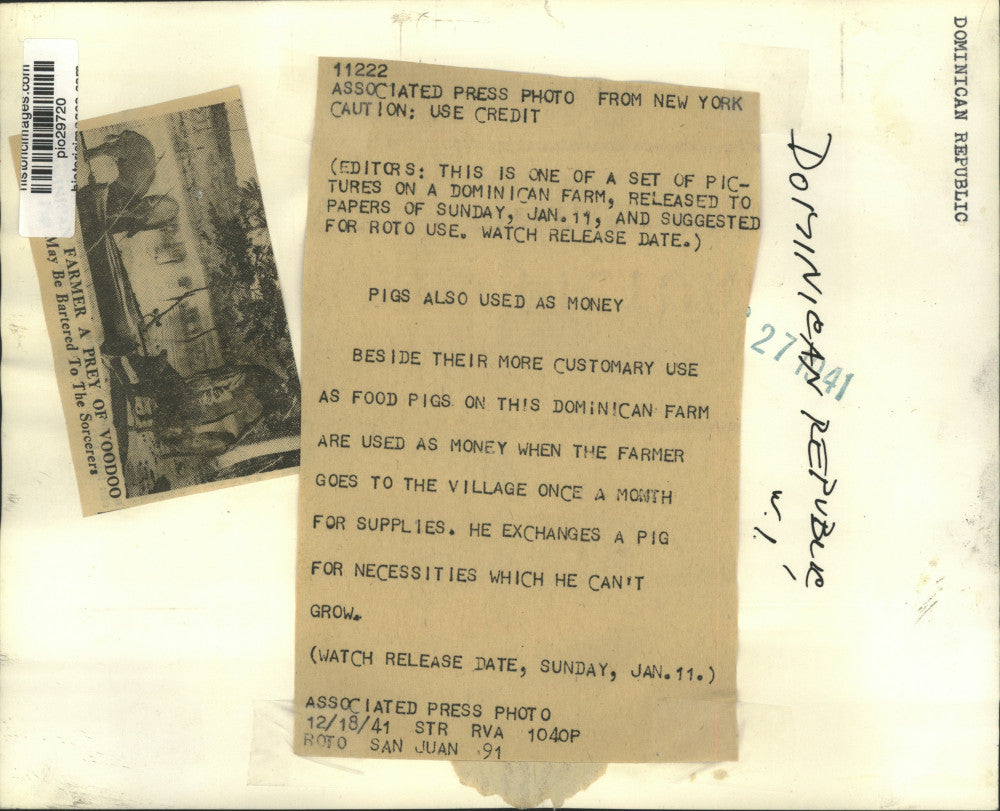 historicimages.com
pio29720
FARMER A PREY OF VOODOO
May Be Bartered To The Sorcerers
11222
ASSOCIATED PRESS PHOTO FROM NEW YORK
CAUTION; USE CREDIT
(EDITORS: THIS IS ONE OF A SET OF PIC-
TURES ON A DOMINICAN FARM, RELEASED TO
PAPERS OF SUNDAY, JAN.11, AND SUGGESTED
FOR ROTO USE. WATCH RELEASE DATE.)
PIGS ALSO USED AS MONEY
BESIDE THEIR MORE CUSTOMARY USE
AS FOOD PIGS ON THIS DOMINICAN FARM
ARE USED AS MONEY WHEN THE FARMER
GOES TO THE VILLAGE ONCE A MONTH
FOR SUPPLIES. HE EXCHANGES A PIG
FOR NECESSITIES WHICH HE CAN'T
GROW.
(WATCH RELEASE DATE, SUNDAY, JAN.11.)
ASSOCIATED PRESS PHOTO
12/18/41 STR RVA 1040P
ROTO SAN JUAN 91
27 1941
DOMINICAN REPUBLIC
W.I,
DOMINICAN REPUBLIC